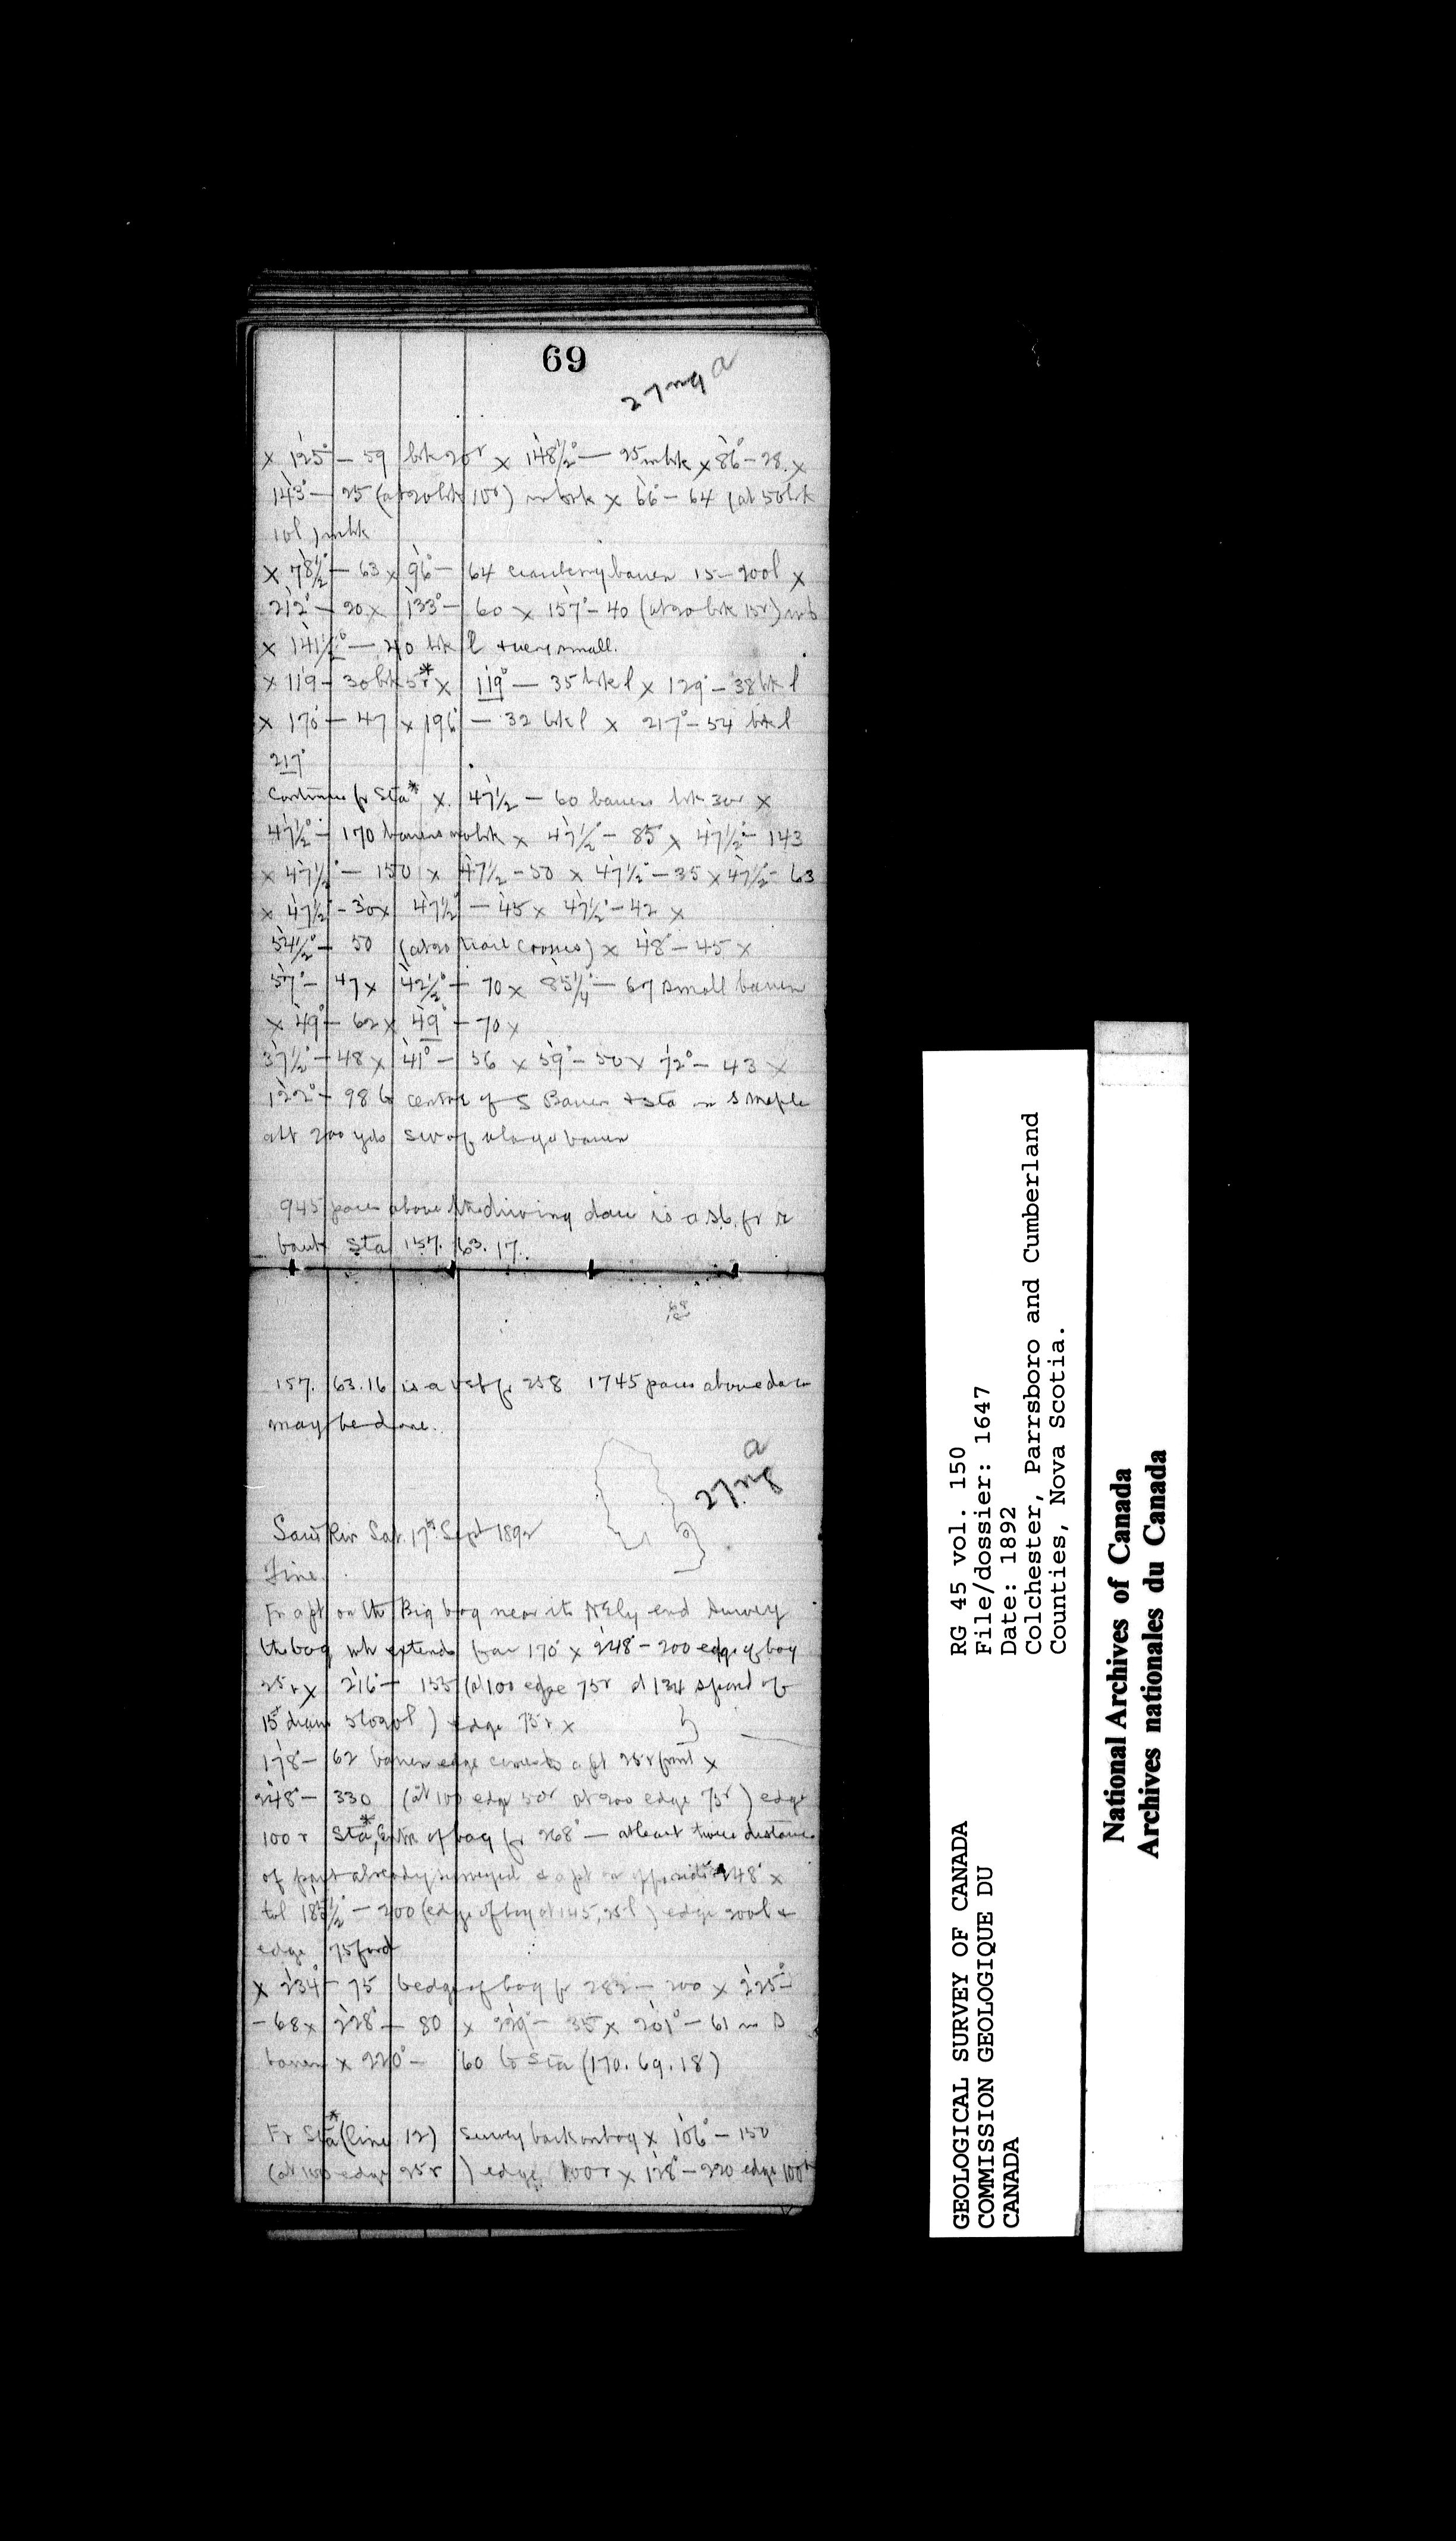 69
27 mg a
x 125° — 59 brk 20r x 148½° — 25 in brk x 86° - 28 x
143° — 25 (at 20 brk 10r) in brk x 66° - 64 (at 50 brk
10l) in brk
x 78½° — 63 x 96° — 64 cranberry barren 15 - 200l x
212° - 20 x 133° - 60 x 157° - 40 (at 20 brk 15r)
x 141½° — 40 brk l & very small.
x 119 - 30 brk 5r* x 119° — 35 brk l x 129° - 38 brk l
x 170° — 47 x 196° — 32 brk l x 217° - 54 brk l
217°
Continue fr Sta* x 47½ — 60 barren brk 30r x
47½° - 170 barren no brk x 47½° - 85 x 47½° - 143
x 47½° — 150 x 47½ - 50 x 47½° - 35 x 47½° - 63
x 47½° - 30 x 47½° — 45 x 47½° - 42 x
54½° - 50 (at 20 trail crosses) x 48° - 45 x
57° - 47 x 42½° - 70 x 85¼° - 67 small barren
x 49° - 62 x 49° - 70 x
37½° - 48 x 41° - 56 x 59° - 50 x 72° - 43 x
122° - 98 to centre of S Barren & sta on S maple
abt 200 yds SW of a large barren
945 paces above the driving dam is a sb. fr r
bank Sta 157. 63. 17.
68
157. 63. 16 is a fr 258 1745 paces above dam
may be done.
27 mg a
Sat. 17th Sept 1892
Fine.
Fr a pt on the Big bog near its NEly end survey
the bog wh extends far 170° x 248° - 200 edge of bog
25r x 216° - 155 (at 100 edge 75r at 134 a pond of
15 diam 5 to 20l) edge 75r x
178° - 62 barren edge comes to a pt 25r front x
248° - 330 (at 100 edge 50r at 200 edge 75r) edge
100r Sta*, Extn of bog fr 268° — at least twice distance
of part already surveyed & a pt on opposite 248° x
tol 185½° — 200 (edge of bog at 145, 25l) edge 200l &
edge 75 ford
x 234° - 75 to edge of bog fr 282 - 200 x 225°
- 68 x 228° - 80 x 229° - 35 x 201° - 61 in S
barren x 220° - 60 to Sta (170. 69. 18)
Fr Sta* (line 12) survey back on bog x 106° - 150
(at 100 edge 25r) edge 100r x 128° - 220 edge 100r
GEOLOGICAL SURVEY OF CANADA
COMMISSION GEOLOGIQUE DU
CANADA
RG 45 vol. 150
File/dossier: 1647
Date: 1892
Colchester, Parrsboro and Cumberland
Counties, Nova Scotia.
National Archives of Canada
Archives nationales du Canada